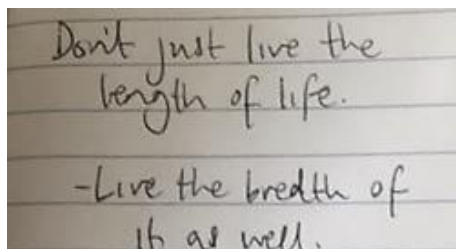 Don't just live the
length of life.
-Live the bredth of
it as well.